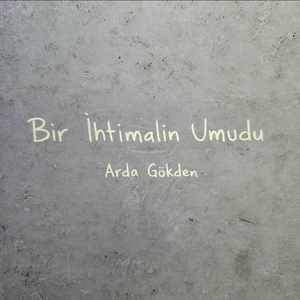 Bir İhtimalin Umudu
Arda Gökden